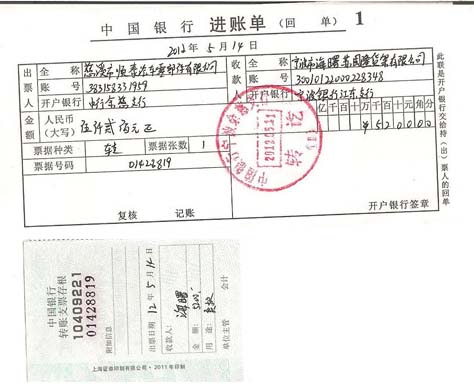 中国银行 进账单（回 单） 1
2012 年 5 月 14 日
出票人 全称 慈溪市恒泰汽车零部件有限公司
账号 383158331959
开户银行
收款人 全称 宁波市海曙
账号 3001012000228348
开户银行 宁波银行江东支行
金额 人民币（大写） 伍仟贰佰元正
亿 千 百 十 万 千 百 十 元 角 分
¥ 5 2 0 0 0 0
票据种类 转支 票据张数 1
票据号码 01428819
复核 记账
开户银行签章
此联是开户银行交给持（出）票人的回单
2012.5.21
转讫
中国银行
转账支票存根
10409221
01428819
附加信息
出票日期 12 年 5 月 14 日
收款人： 海曙
金 额： 5200.-
用 途：
单位主管 会计
上海证券印制有限公司·2011年印制